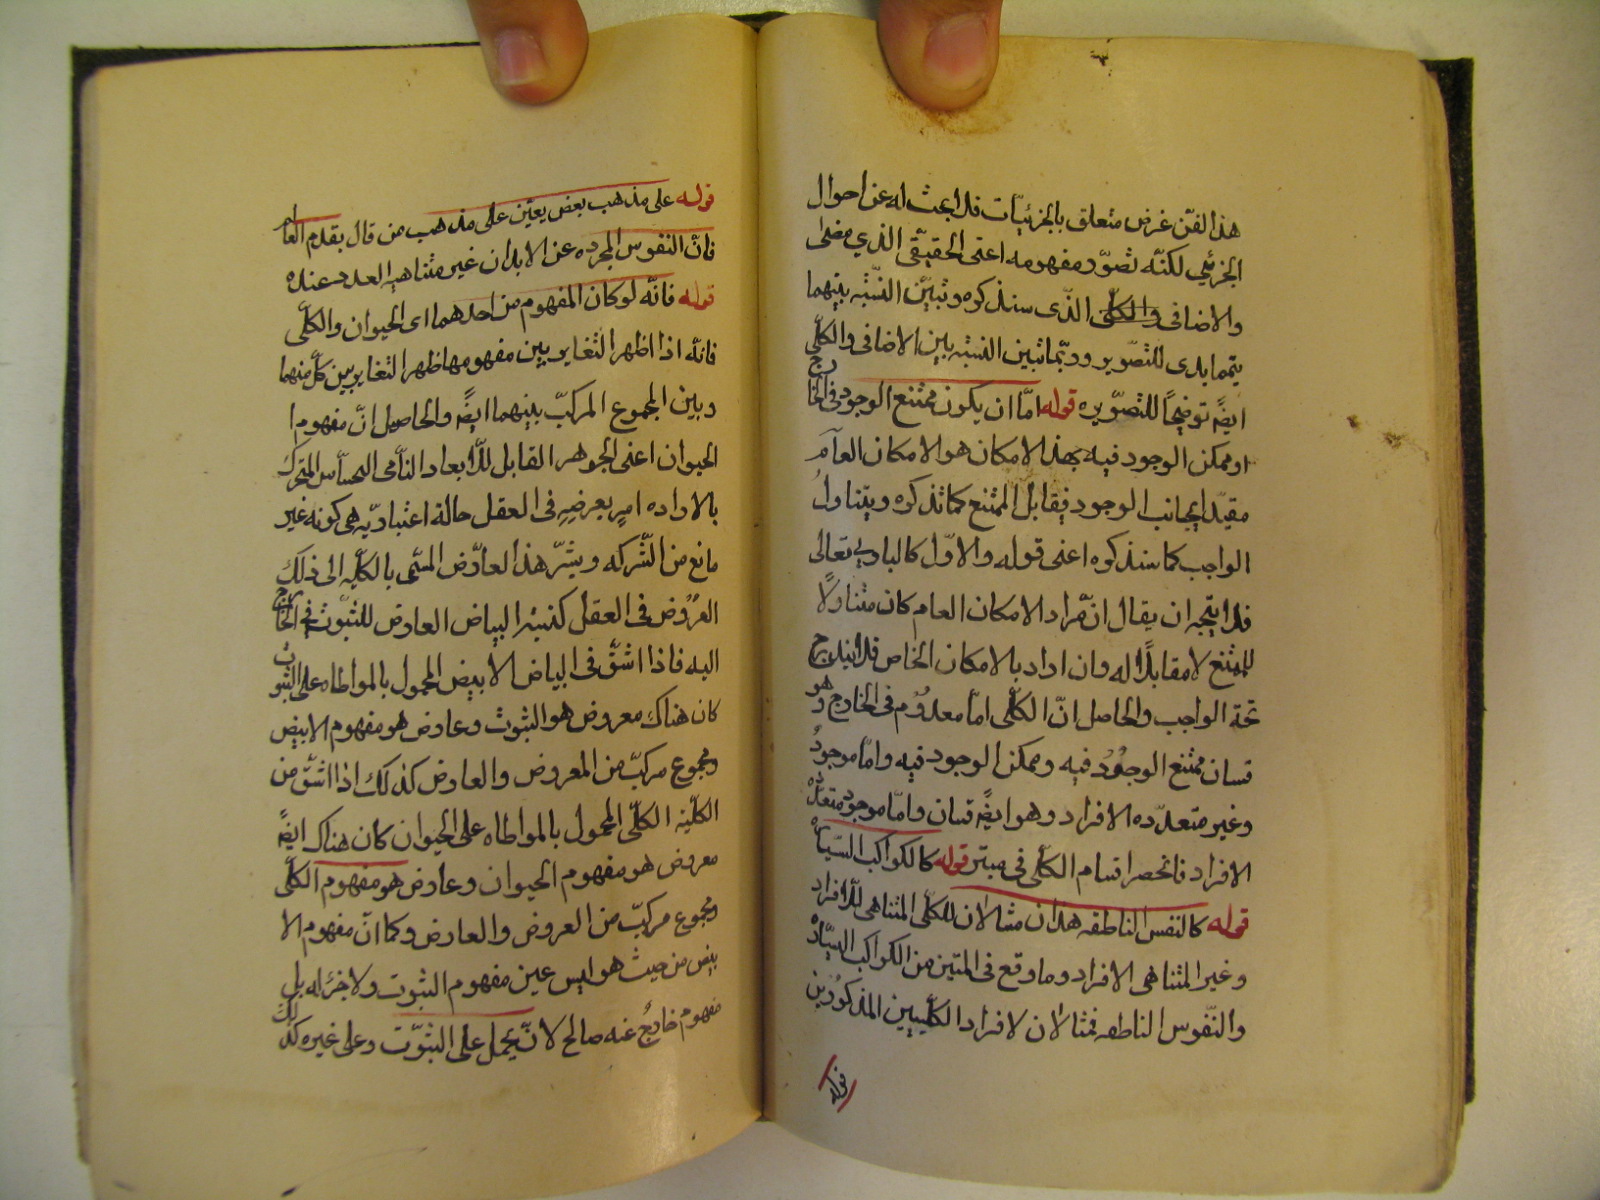 هذا الفن غرض متعلق بالجزئيات فلا بحث له عن احوال
الجزئي لكنّه تصوّر مفهومه اعنى الحقيقي الذي مضى
والاضافى والكلّى الذى سنذكره وتبيّن النسبة بينهما
يتمما بدى للتصوير وربّما تبين النسبة بين الاضافى والكلّى
ايضًا توضيحًا للتصويره قوله امّا ان يكون ممتنع الوجود فى الخارج
او ممكن الوجود فيه بهذا الامكان هو الامكان العآم
مقيّدا بجانب الوجود فيقابل الممتنع كما تذكره ويتناول
الواجب كما سنذكره اعنى قوله والاوّل كالبارى تعالى
فلا يتجه ان يقال انّ مراد الامكان العام كان متناولًا
للممتنع لا مقابلًا له وان اراد بالامكان الخاص فلا يندرج
تحة الواجب والحاصل انّ الكلّى امّا معدوم فى الخارج وهو
قسمان ممتنع الوجود فيه وممكن الوجود فيه وامّا موجودٌ
وغير متعدّده الافراد وهو ايضًا قسمان وامّا موجود متعدّده
الافراد فانحصر اقسام الكلّى فى ستّة قوله كالكواكب السيّاة
قوله كالنفس الناطقه هذان مثالان للكلّى المتناهى للافراد
وغير المتناهى الافراد وما وقع فى المتن من الكواكب السيّارة
والنّفوس الناطقه فمثالان لافراد الكلّيين المذكورين
قوله
قوله على مذهب بعض يعنى على مذهب من قال بقدم العالم
فانّ النفوس المجرده عن الابدان غير متناهية العدد عنده
قوله فانّه لو كان المفهوم من احدهما اى الحيوان والكلّى
فانّه اذا اظهرا التغاير بين مفهومهما ظهر التغاير بين كلّ منهما
وبين المجموع المركبّ بينهما ايضًا والحاصل انّ مفهوم ا
الحيوان اعنى الجوهر القابل للابعاد النّامى الحسآس المتحرك
بالاراده امرٍ يعرضه فى العقل حالة اعتباريّة هى كونه غير
مانع من الشّركه ويشرّ هذا العارض المسّمى بالكلّيه الى ذلك
العرُوض فى العقل كنسبة البياض العارض للثبوت فى الخارج
اليه فاذا اشتقّ فى البياض الأبيض المحمول بالمواطاه على الثبوت
كان هناك معروض هو الثبوت وعارض هو مفهوم الابيض
ومجموع مركبّ من المعروض والعارض كذلك اذا اشتقّ من
الكلّية الكلّى المحمول بالمواطاه على الحيوان كان هناك ايضًا
معروض هو مفهوم الحيوان وعارض هو مفهوم الكلّى
ومجموع مركبّ من العروض والعارض وكما انّ مفهوم الا
بيض من حيث هو ليس عين مفهوم الثبوت ولا جزاله بل
مفهوم خارجٌ عنه صالح لانّ يحمل على الثبّوت وعلى غيره كذلك